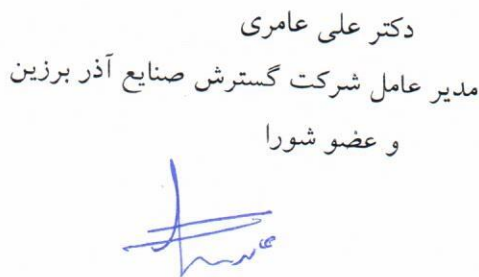 دکتر علی عامری
مدیر عامل شرکت گسترش صنایع آذر برزین
و عضو شورا